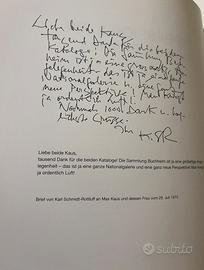 Liebe beide Kaus,
tausend Dank für die beiden
Kataloge! Die Sammlung Buch-
heim ist ja eine
– das ist ja eine ganze
Nationalgalerie und eine ganz
neue Perspektive!
ja ordentlich Luft!
Nochmals 1000 Dank u. herz-
lichste Grüsse
Ihr K. S-R
Liebe beide Kaus,
tausend Dank für die beiden Kataloge! Die Sammlung Buchheim ist ja eine
legenheit – das ist ja eine ganze Nationalgalerie und eine ganz neue Perspektive
ja ordentlich Luft!
Brief von Karl Schmidt-Rottluff an Max Kaus und dessen Frau vom 29. Juli 197
subito